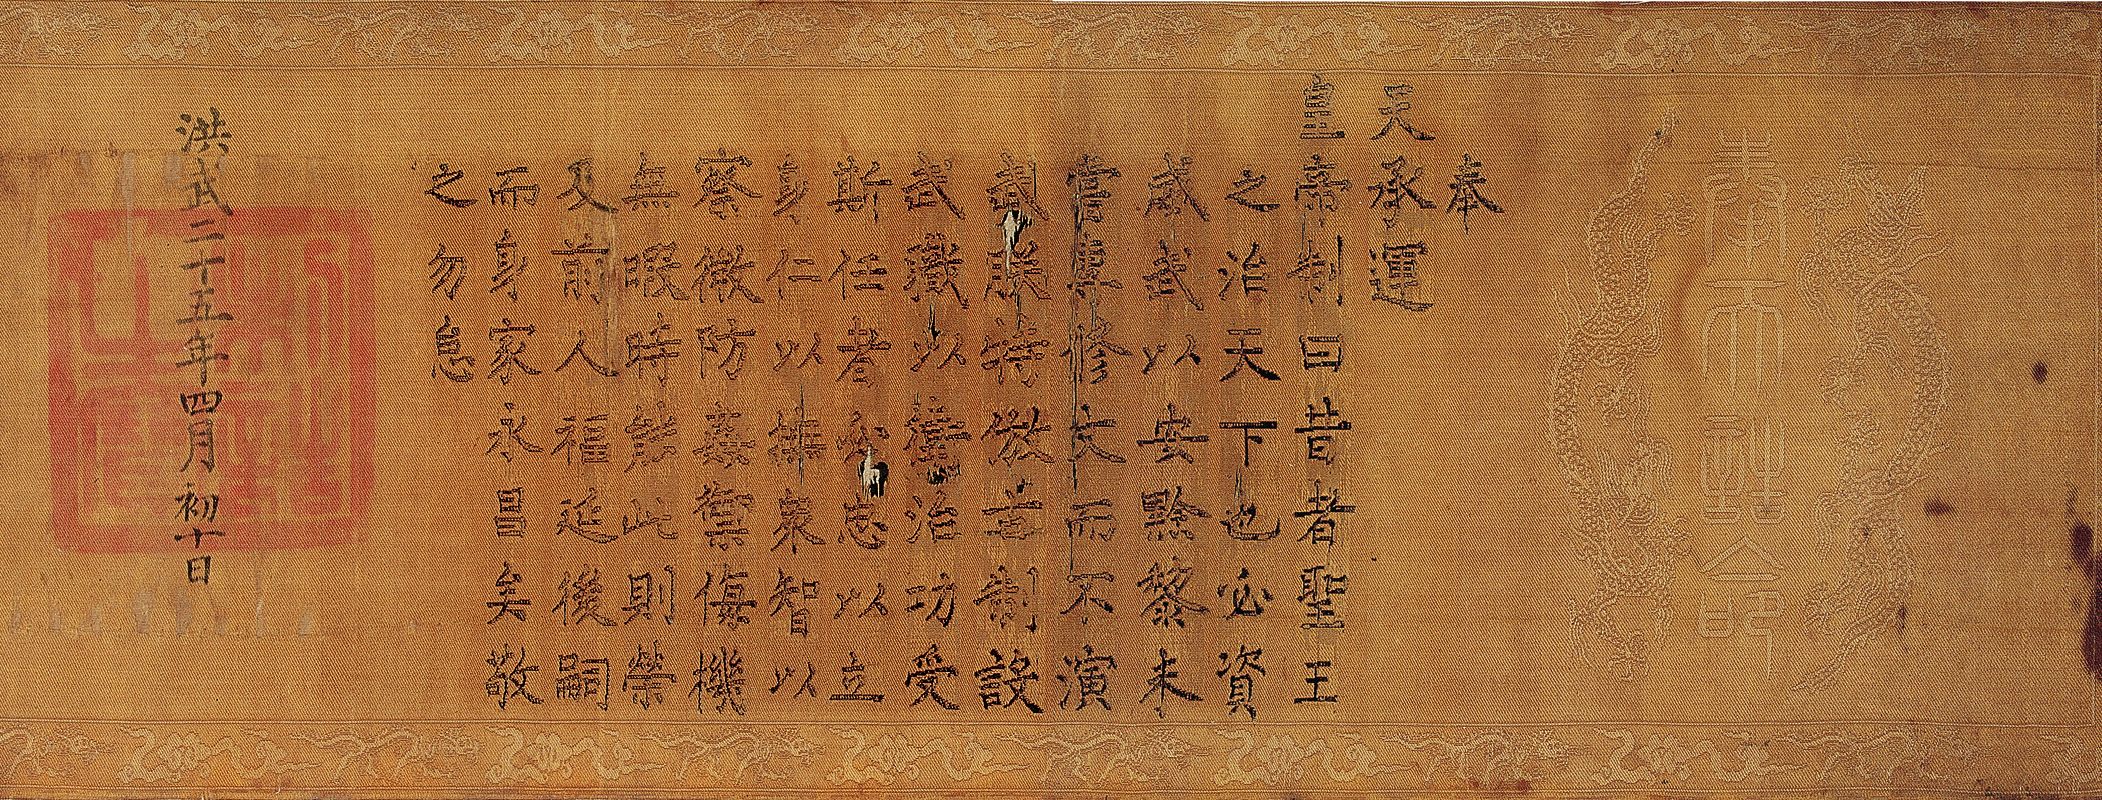 奉天誥命
奉
天承運
皇帝制曰昔者聖王
之治天下也必資
威武以安黔黎未
嘗專修文而不演
武朕特倣古制設
武職以衛治功受
斯任者必忠以立
身仁以撫衆智以
察微防姦禦侮機
無暇時能此則榮
及前人福延後嗣
而身家永昌矣敬
之勿怠
洪武二十五年四月初十日
制誥之寶